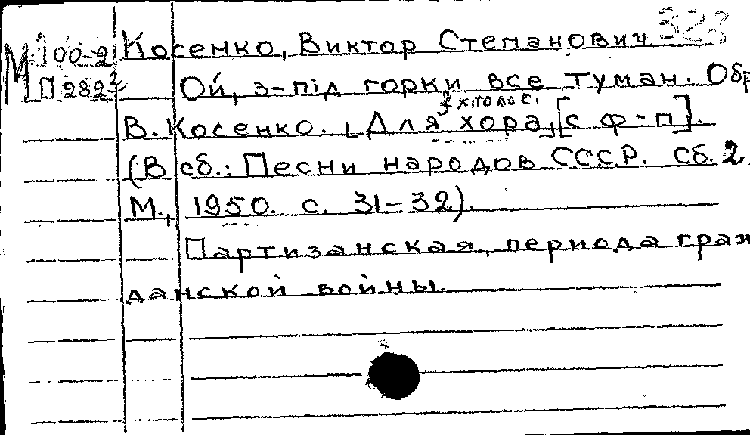 323
М 100-2 Косенко, Виктор Степанович
П 282² Ой, з-під горки все туман. Обр
3 х голос.
В. Косенко. [Для хора, [с ф-п].
(В сб.: Песни народов СССР. Сб. 2.
М., 1950. с. 31-32).
Партизанская, периода граж
данской войны.